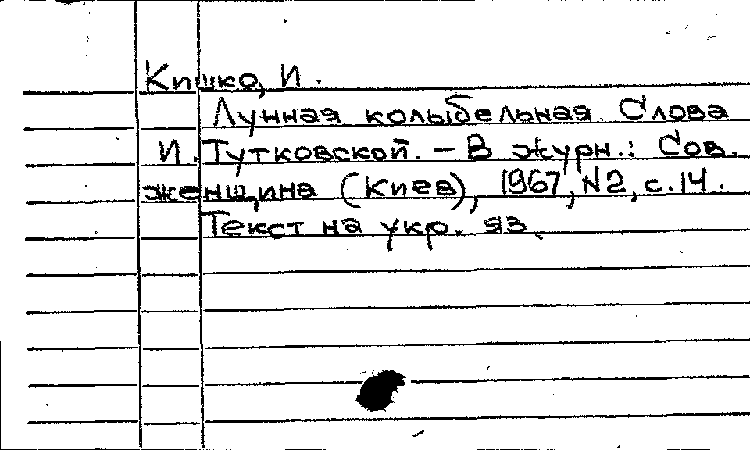 Кишко, И.
Лунная колыбельная Слова
И. Тутковской. – В журн.: Сов.
женщина (Киев), 1967, N2, с.14.
Текст на укр. яз.